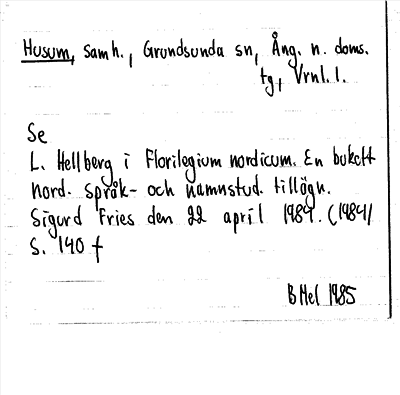 Husum, samh., Grundsunda sn, Ång. n. doms.
tg, Vrnl. l.
Se
L. Hellberg i Florilegium nordicum. En bukett
nord. språk- och namnstud. tillägn.
Sigurd Fries den 22 april 1984. (1984)
S. 140 f
BHel 1985